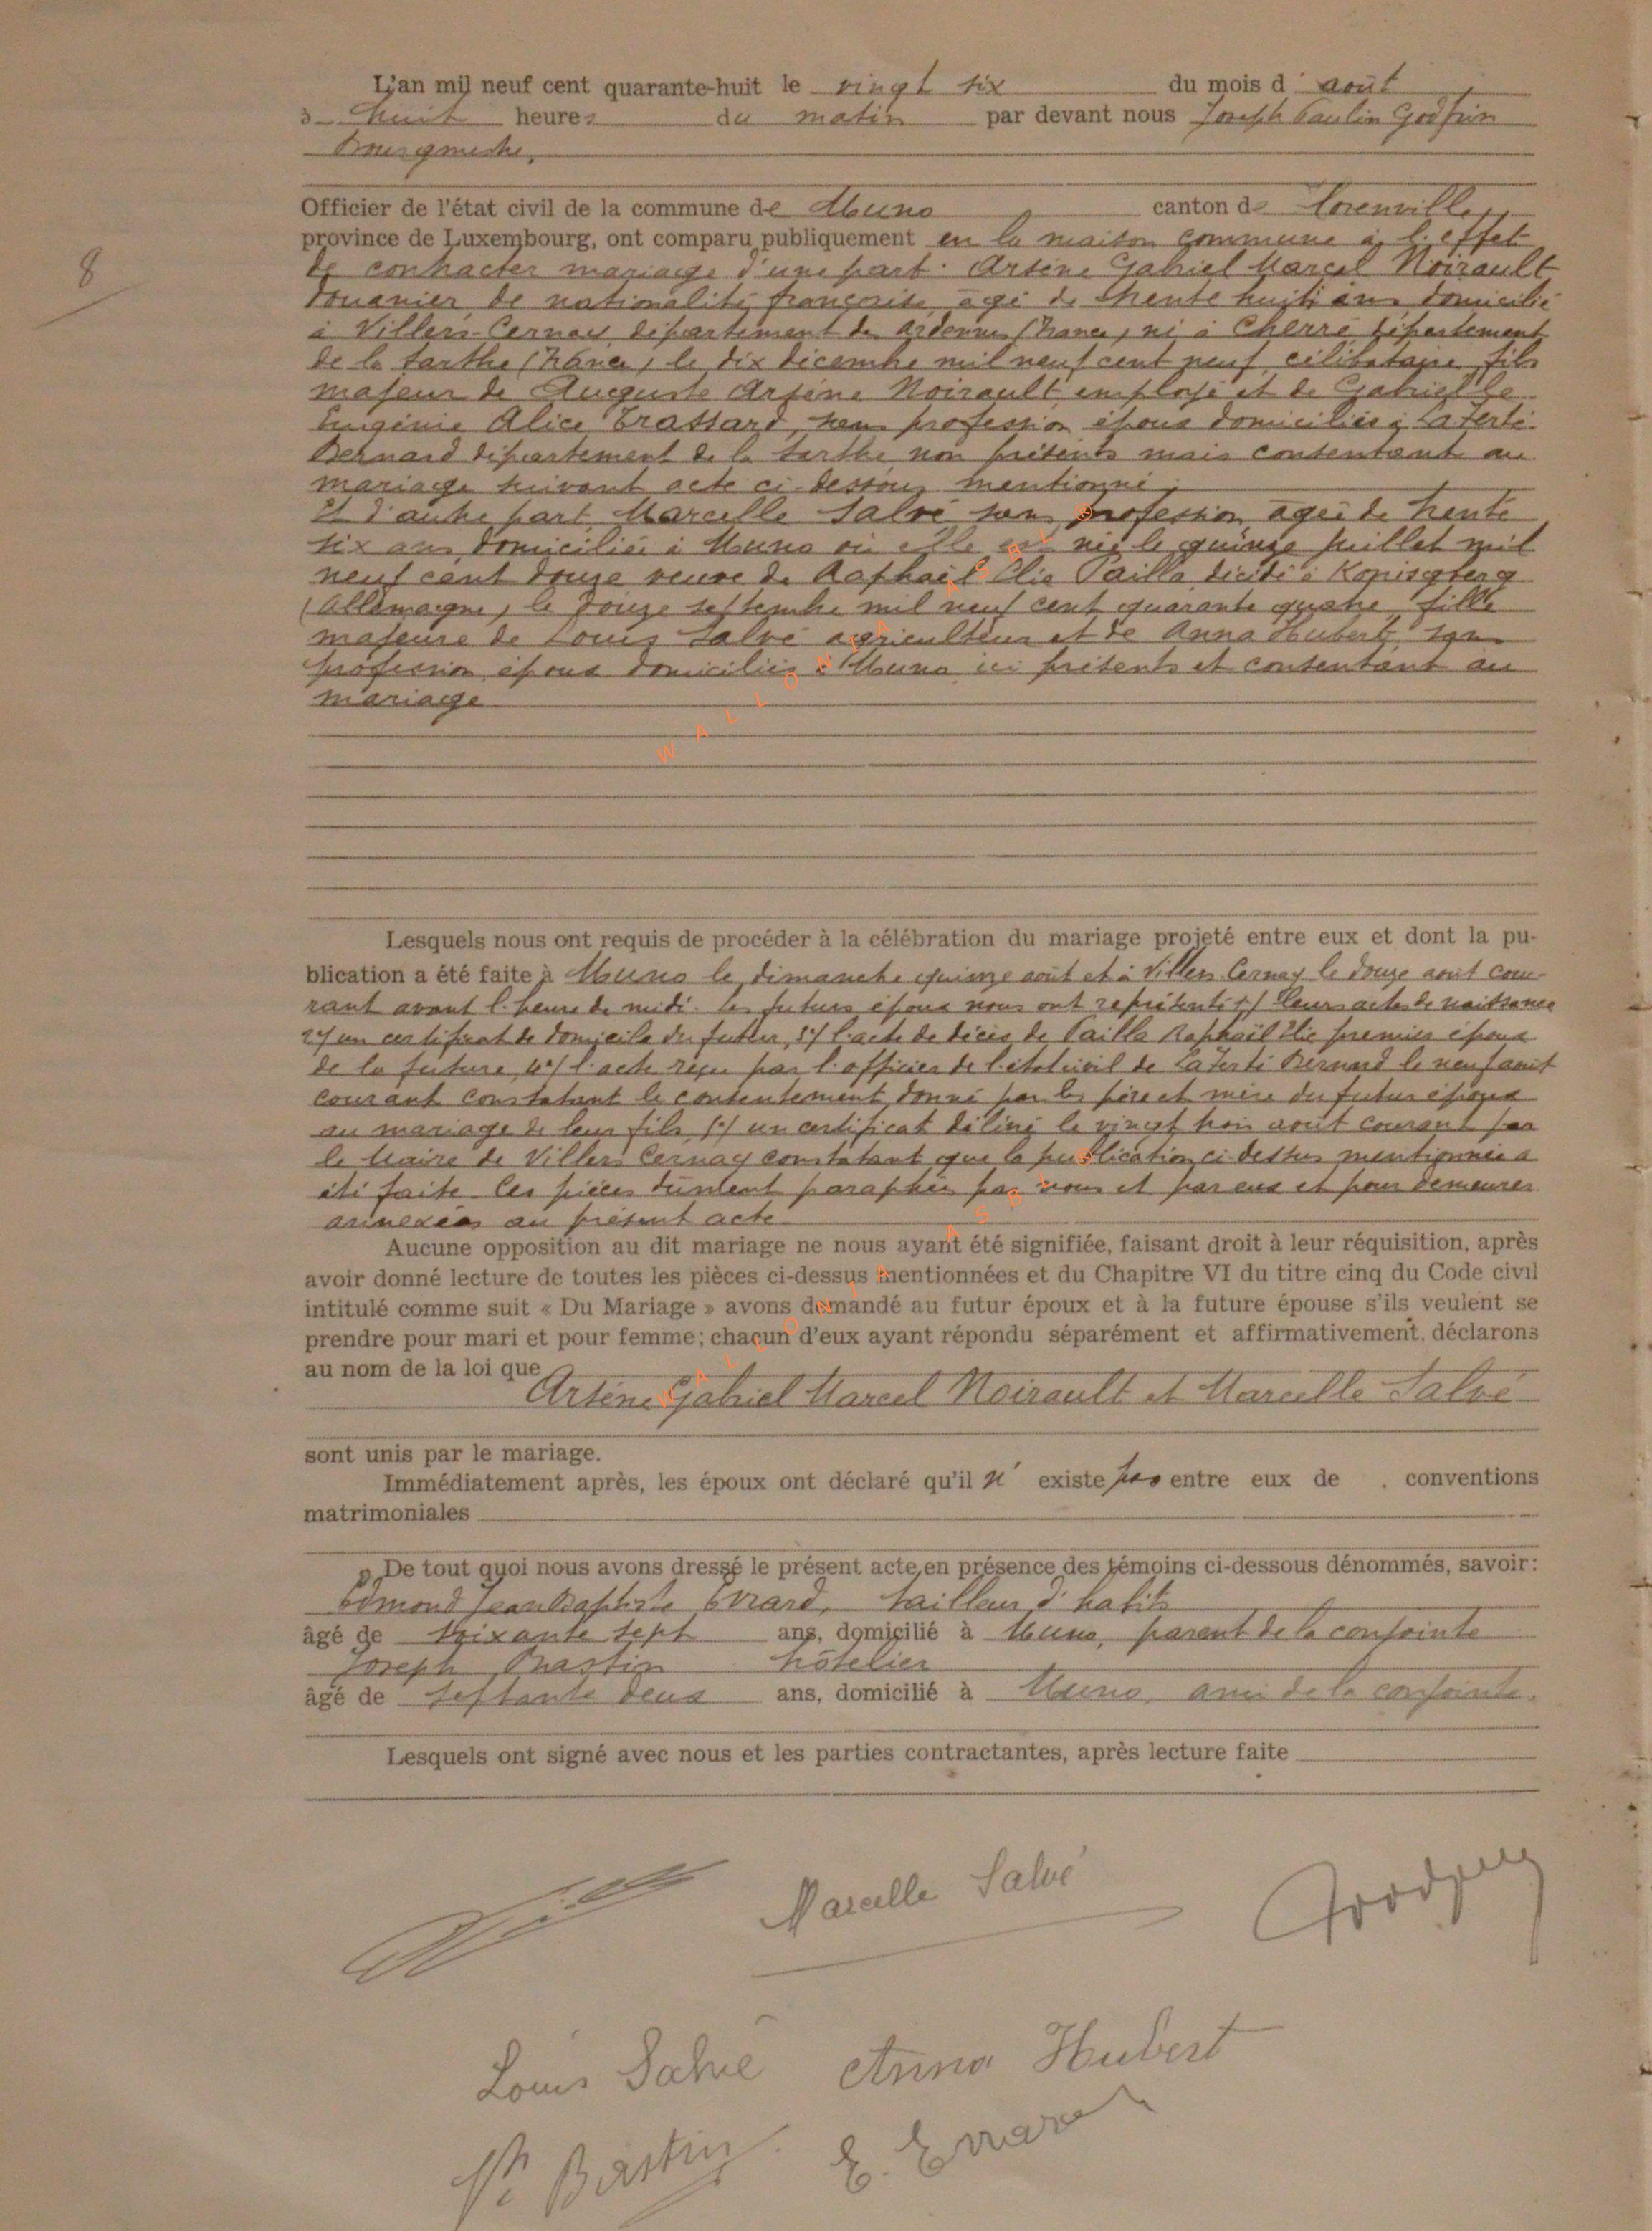 L'an mil neuf cent quarante-huit le vingt six du mois d'août
à huit heures du matin par devant nous Joseph Paulin Godfrin
Bourgmestre,
Officier de l'état civil de la commune de Muno canton de Florenville,
province de Luxembourg, ont comparu publiquement en la maison commune à l'effet
de contracter mariage d'une part. Arsène Gabriel Marcel Noirault
douanier de nationalité française âgé de trente huit ans domicilié
à Villers-Cernay département des Ardennes (France) né à Cherré département
de la Sarthe (France) le dix décembre mil neuf cent neuf, célibataire, fils
majeur de Auguste Arsène Noirault employé et de Gabrielle
Eugénie Alice Brassard, sans profession époux domiciliés à La Ferté-
Bernard département de la Sarthe, non présents mais consentant au
mariage suivant acte ci-dessous mentionné;
Et d'autre part, Marcelle Salvé sans profession âgée de trente
six ans domiciliée à Muno où elle est née le quinze juillet mil
neuf cent douze veuve de Raphaël Elie Pailla décédé à Konisgberg
(Allemagne) le douze septembre mil neuf cent quarante quatre, fille
majeure de Louis Salvé agriculteur et de Anna Hubert, sans
profession, époux domiciliés à Muno ici présents et consentant au
mariage
WALLONIA ASBL
8
Lesquels nous ont requis de procéder à la célébration du mariage projeté entre eux et dont la pu-
blication a été faite à Muno le dimanche quinze août et à Villers-Cernay le douze août cou-
rant avant l'heure de midi. Les futurs époux nous ont représenté 1°/ leurs actes de naissance
2°/ un certificat de domicile du futur, 3°/ l'acte de décès de Pailla Raphaël Elie premier époux
de la future, 4°/ l'acte reçu par l'officier de l'état civil de La Ferté Bernard le neuf août
courant constatant le consentement donné par les père et mère du futur époux
au mariage de leur fils 5°/ un certificat délivré le vingt trois août courant par
le Maire de Villers Cernay constatant que la publication ci-dessus mentionnée a
été faite. Ces pièces dûment paraphées par nous et par eux et pour demeurer
annexées au présent acte.
Aucune opposition au dit mariage ne nous ayant été signifiée, faisant droit à leur réquisition, après
avoir donné lecture de toutes les pièces ci-dessus mentionnées et du Chapitre VI du titre cinq du Code civil
intitulé comme suit « Du Mariage » avons demandé au futur époux et à la future épouse s'ils veulent se
prendre pour mari et pour femme; chacun d'eux ayant répondu séparément et affirmativement, déclarons
au nom de la loi que
Arsène Gabriel Marcel Noirault et Marcelle Salvé
sont unis par le mariage.
Immédiatement après, les époux ont déclaré qu'il n' existe pas entre eux de . conventions
matrimoniales
De tout quoi nous avons dressé le présent acte, en présence des témoins ci-dessous dénommés, savoir:
Edmond Jean Baptiste Evrard, tailleur d'habits
âgé de soixante sept ans, domicilié à Muno, parent de la conjointe
Joseph Bastin hôtelier
âgé de septante deux ans, domicilié à Muno, ami de la conjointe.
Lesquels ont signé avec nous et les parties contractantes, après lecture faite
Marcelle Salvé
Louis Salvé Anna Hubert
Bastin E. Evrard